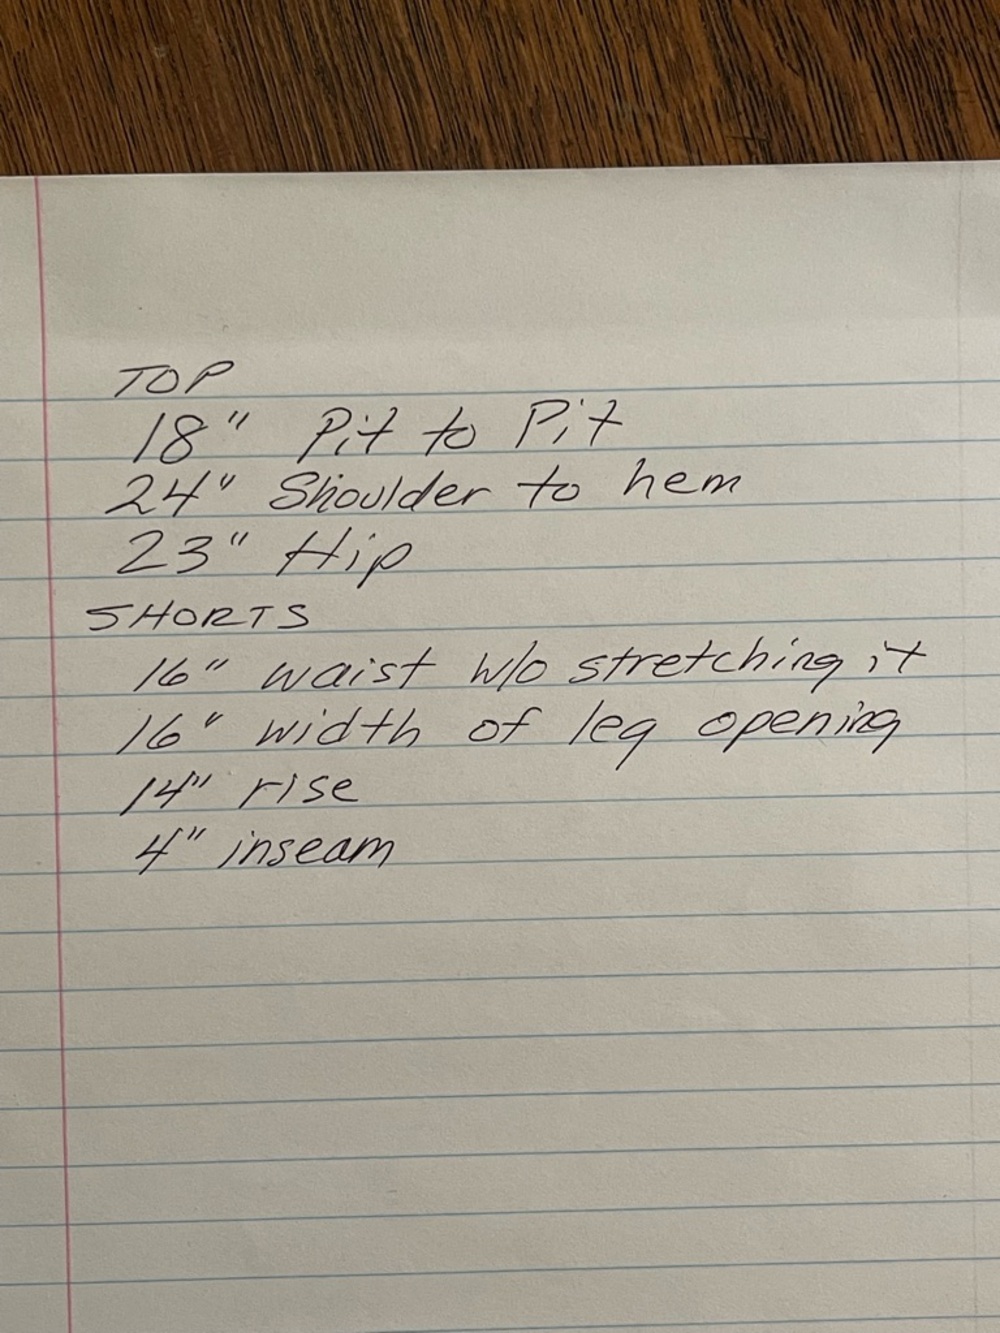 TOP
18" Pit to Pit
24" Shoulder to hem
23" Hip
SHORTS
16" waist w/o stretching it
16" width of leg opening
14" rise
4" inseam